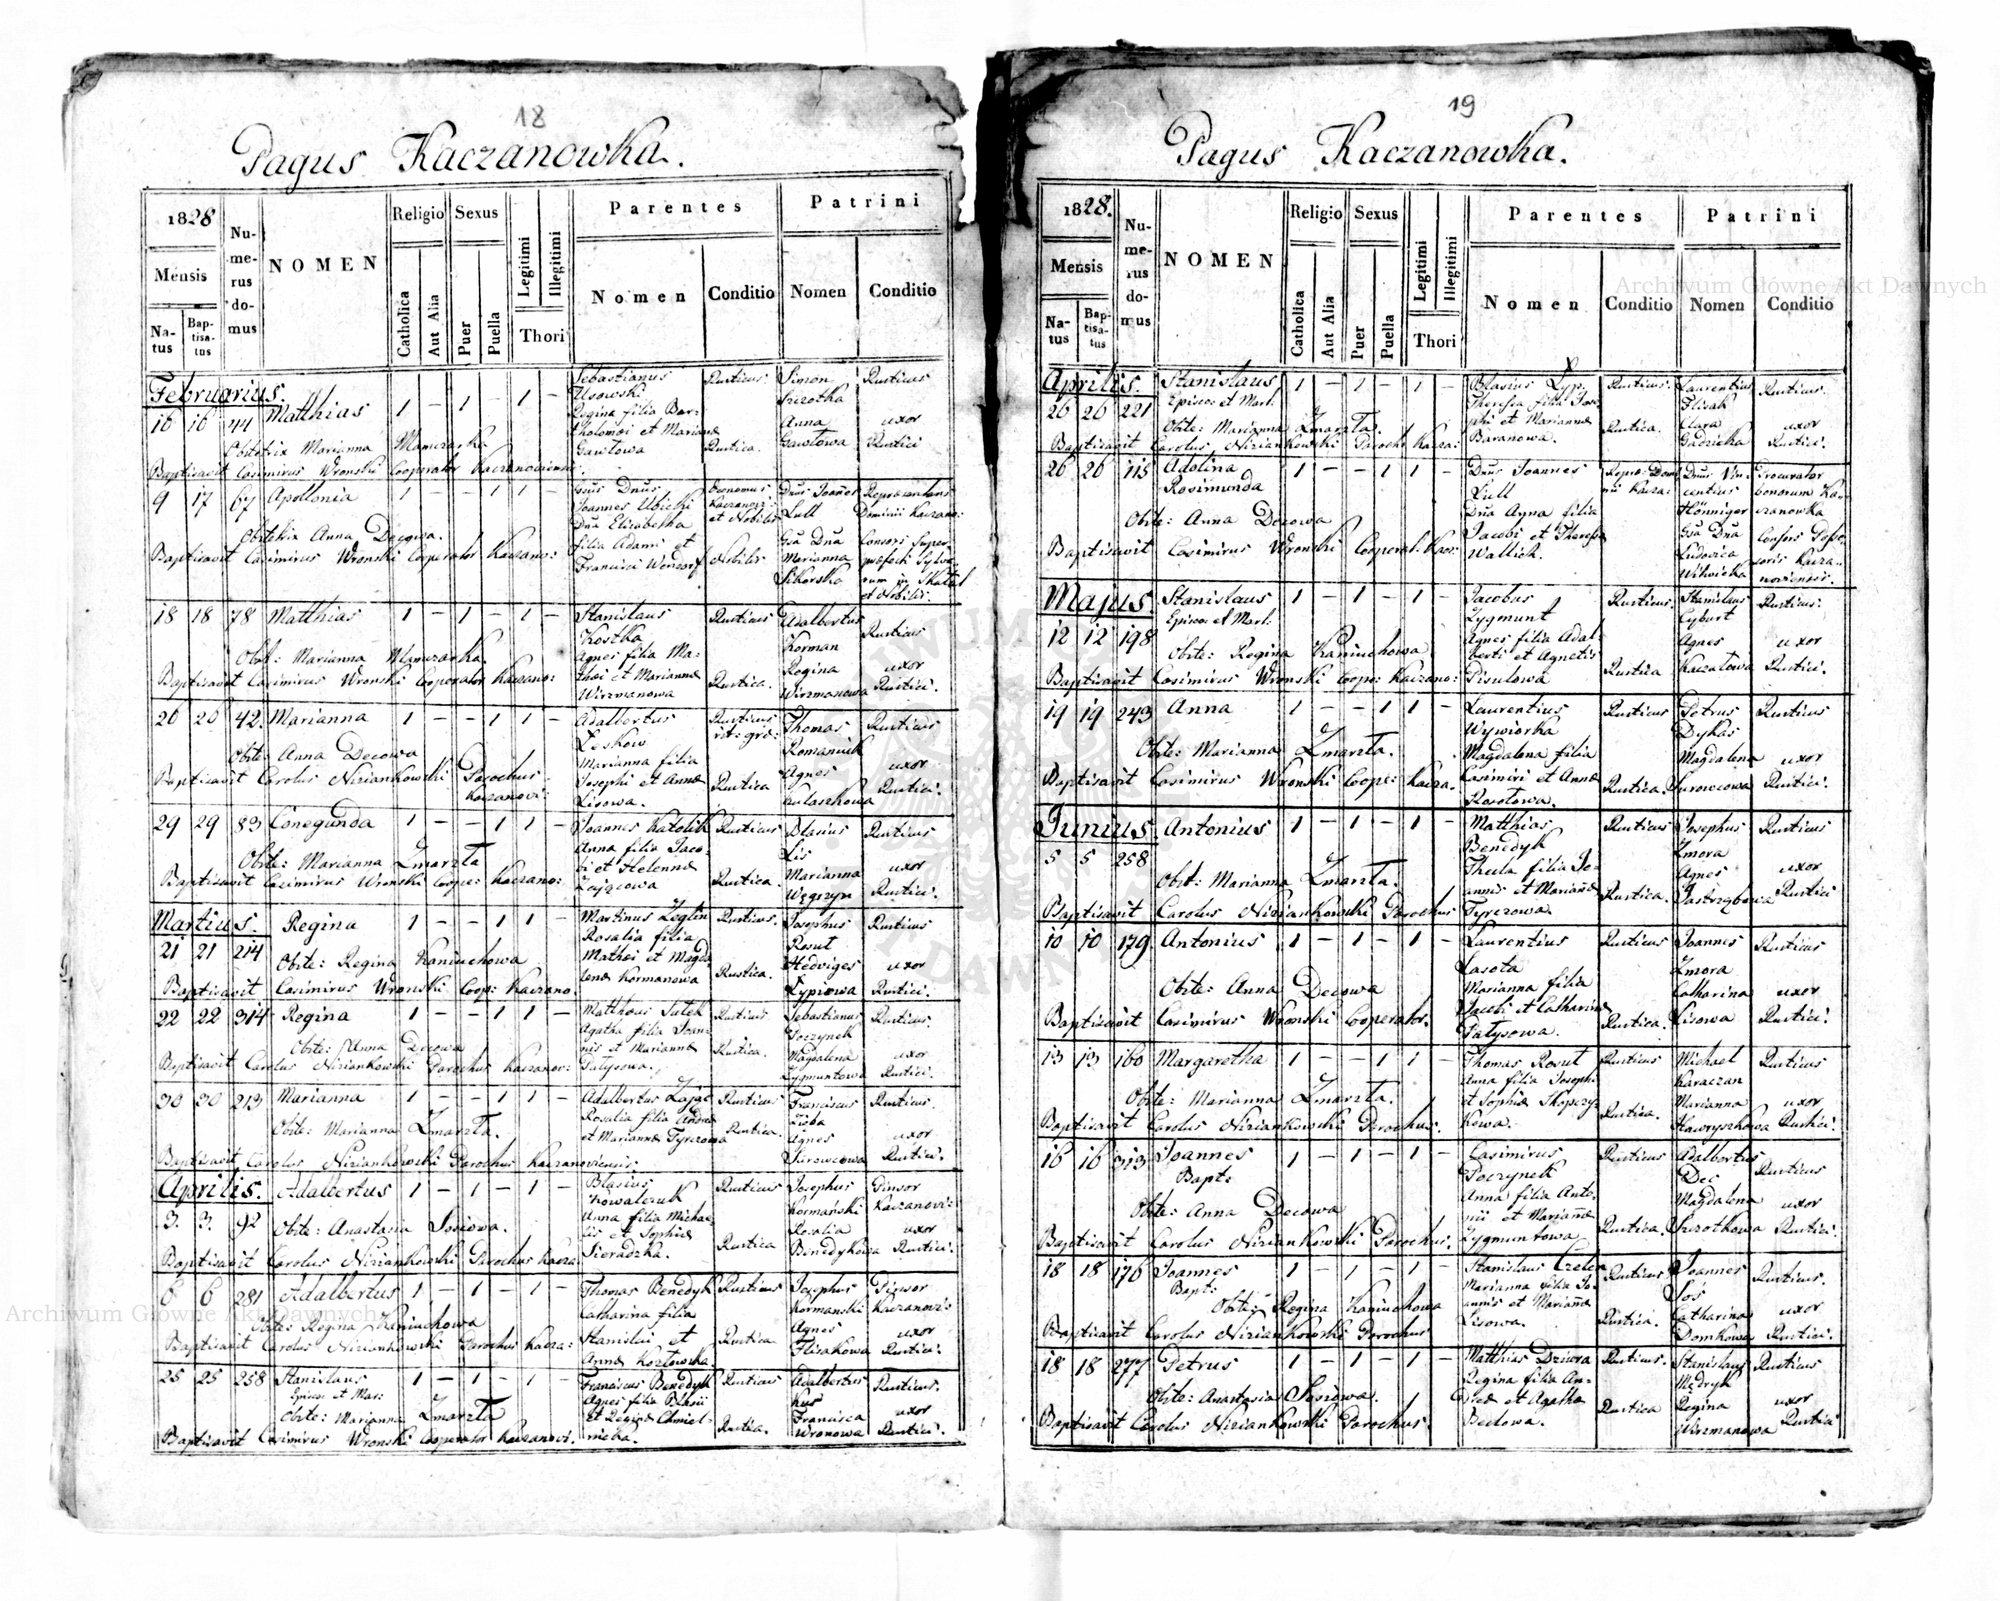 18
Pagus Kaczanowka.
1828
Mensis
Natus
Baptisatus
Numerus domus
NOMEN
Religio
Catholica
Aut Alia
Sexus
Puer
Puella
Legitimi
Illegitimi
Thori
Parentes
Nomen
Conditio
Patrini
Nomen
Conditio
Februarius.
16 16 44 Matthias 1 – 1 – 1 –
Sebastianus Rusticus. Simon Rusticus
Usowski
Regina filia Bar-
tholomæi et Mariannæ Anna uxor
Gawłowa Rustica. Gawłowa Rustici
Obstetrix Marianna Mamczarka
Baptisavit Casimirus Wronski Cooperator Kaczanoviensis
9 17 67 Apollonia 1 – – 1 1 –
Joannes Ubicki
Dna Elisabetha
filia Adami et
Francisca Nobilis
Lull Dominii Kaczano:
Gsa Dna
Marianna
Sikorska
et Nobilis.
Obstetrix Anna Decowa.
Baptisavit Casimirus Wronski Cooperator Kaczano:
18 18 78 Matthias 1 – 1 – 1 –
Stanislaus Rusticus Adalbertus Rusticus
Kostka Korman
Agnes filia Ma-
thæi et Mariannæ Regina uxor
Wirzmanowa Rustica. Wirzmanowa Rustici.
Obst: Marianna Mamczarka.
Baptisavit Casimirus Wronski Cooperator Kaczano:
26 26 42. Marianna 1 – – 1 1 –
Adalbertus Rusticus Thomas Rusticus
Leskow rit: græ: Romaniuk
Marianna filia Agnes uxor
Josephi et Annæ Rustica Kulaszkowa Rustici.
Lisowa.
Obste: Anna Decowa
Baptisavit Carolus Niziankowski Parochus
Kaczanovi:
29 29 83 Conegunda 1 – – 1 1 –
Joannes Katolik Rusticus Blasius Rusticus
Anna filia Jaco- Lis
bi et Helennæ Marianna uxor
Zającowa Rustica. Węgrzyn Rustici.
Obste: Marianna Zmarzta
Baptisavit Casimirus Wronski Coope: Kaczano:
Martius.
21 21 214 Regina 1 – – 1 1 –
Martinus Zeglin Rusticus. Josephus Rusticus
Rosalia filia Rosut
Mathæi et Magda- Hedviges uxor
lenæ Kormanowa Rustica. Łypiowa Rustici.
Obste: Regina Kaniuchowa
Baptisavit Casimirus Wronski Coop: Kaczano.
22 22 314 Regina 1 – – 1 1 –
Matthæus Rusticus Sebastianus Rusticus.
Agatha filia Joan- Poczynek
nis et Mariannæ Rustica. Magdalena uxor
Zygmuntowa Rustici.
Obste: Anna Decowa
Baptisavit Carolus Niziankowski Parochus Kaczanov:
30 30 213 Marianna 1 – – 1 1 –
Adalbertus Zając Rusticus Franciscus Rusticus.
Rosalia filia Andreæ
et Mariannæ Tyrczowa Rustica. Agnes uxor
Surowcowa Rustici.
Obste: Marianna Zmarzta.
Baptisavit Carolus Niziankowski Parochus Kaczanoviensis.
Aprilis.
3. 3. 92 Adalbertus 1 – 1 – 1 –
Blasius Rusticus Josephus
Kowalczuk Kormański Kaczanovi:
Anna filia Michae-
lis et Sophiæ Rosalia uxor
Sieradzka. Rustica Benedykowa Rustici.
Obste: Anastasia Josiowa.
Baptisavit Carolus Niziankowski Parochus Kacza:
6 6 281 Adalbertus 1 – 1 – 1 –
Thomas Benedyk Rusticus Josephus
Catharina filia Kormanski Kaczanovi:
Stanislai et Agnes uxor
Annæ Kozłowska. Rustica Flisakowa Rustici.
Obste: Regina Kaniuchowa
Baptisavit Carolus Niziankowski Parochus Kacza:
25 25 258 Stanislaus 1 – 1 – 1 –
Episco: et Mar:
Franciscus Benedyk Rusticus Adalbertus Rusticus.
Agnes filia Blasii Kus
et Reginæ Chmiel- Francisca uxor
nicka. Rustica. Wronowa Rustici.
Obste: Marianna Zmarzta
Baptisavit Casimirus Wronski Cooperator Kaczanovi.
19
Pagus Kaczanowka.
1828.
Mensis
Natus
Baptisatus
Numerus domus
NOMEN
Religio
Catholica
Aut Alia
Sexus
Puer
Puella
Legitimi
Illegitimi
Thori
Parentes
Nomen
Conditio
Patrini
Nomen
Conditio
Aprilis.
26 26 221 Stanislaus 1 – 1 – 1 –
Episco: et Mart:
Blasius Łyp. Rusticus. Laurentius Rusticus.
Theresia filia Jose- Flisak
phi et Mariannæ Rustica. Clara uxor
Baranowa. Gudzicka Rustici.
Obste: Marianna Zmarzta.
Baptisavit Carolus Niziankowski Paroch: Kacza:
26 26 115 Adolina 1 – – 1 1 –
Rosimunda
Dnus Joannes
Lull
Dna Anna filia
Jacobi et Theresiæ
Wallick.
Procurator
bonorum Ka-
czanowka
Gsa Dna
Ludovica
Obste: Anna Decowa
Baptisavit Casimirus Wronski Cooperat: Kacz:
Majus.
12 12 198 Stanislaus 1 – 1 – 1 –
Episco: et Mart:
Jacobus Rusticus. Stanislaus Rusticus.
Zygmunt Cyburt
Agnes filia Adal- Agnes uxor
berti et Agnetis
Pisulowa Rustica Rustici.
Obste: Regina Kaniuchowa
Baptisavit Casimirus Wronski Coope: Kaczano:
19 19 243 Anna 1 – – 1 1 –
Laurentius Rusticus Petrus Rusticus
Wywiorka Dykas
Magdalena filia Magdalena uxor
Casimiri et Annæ Rustica. Surowcowa Rustici.
Rosołowa.
Obste: Marianna Zmarzta.
Baptisavit Casimirus Wronski Coope: Kacza.
Junius.
5 5 258 Antonius 1 – 1 – 1 –
Matthias Rusticus Josephus Rusticus
Benedyk Zmora
Thecla filia Jo- Agnes uxor
annis et Mariannæ Rustica. Jastrzębowa Rustici
Tyrczowa.
Obst: Marianna Zmarzta.
Baptisavit Carolus Niziankowski Parochus
10 10 179 Antonius 1 – 1 – 1 –
Laurentius Rusticus Joannes Rusticus
Lasota Zmora
Marianna filia Catharina uxor
Jacobi et Catharinæ Rustica. Lisowa Rustici.
Obste: Anna Decowa
Baptisavit Casimirus Wronski Cooperator.
13 13 160 Margaretha 1 – – 1 1 –
Thomas Rosut Rusticus Michael Rusticus
Anna filia Josephi Karaczan
et Sophiæ Rustica. Marianna uxor
Hawryszkowa Rustici.
Obste: Marianna Zmarzta.
Baptisavit Carolus Niziankowski Parochus.
16 16 313 Joannes 1 – 1 – 1 –
Bapt:
Casimirus Rusticus Adalbertus Rusticus
Poczynek Dec
Anna filia Anto- Magdalena uxor
nii et Mariannæ Rustica. Rustici.
Zygmuntowa
Obste: Anna Decowa
Baptisavit Carolus Niziankowski Parochus.
18 18 176 Joannes 1 – 1 – 1 –
Bapt:
Stanislaus Rusticus Joannes Rusticus.
Marianna filia Jo- Łoś
annis et Mariannæ Catharina uxor
Lisowa. Rustica. Domkowa Rustici.
Obste: Regina Kaniuchowa
Baptisavit Carolus Niziankowski Parochus
18 18 277 Petrus 1 – 1 – 1 –
Matthias Rusticus. Stanislaus Rusticus
Regina filia An- Mędryk
dreæ et Agathæ Rustica Regina uxor
Wirzmanowa Rustici
Obste: Anastasia Josiowa.
Baptisavit Carolus Niziankowski Parochus.
Archiwum Główne Akt Dawnych
Archiwum Główne Akt Dawnych